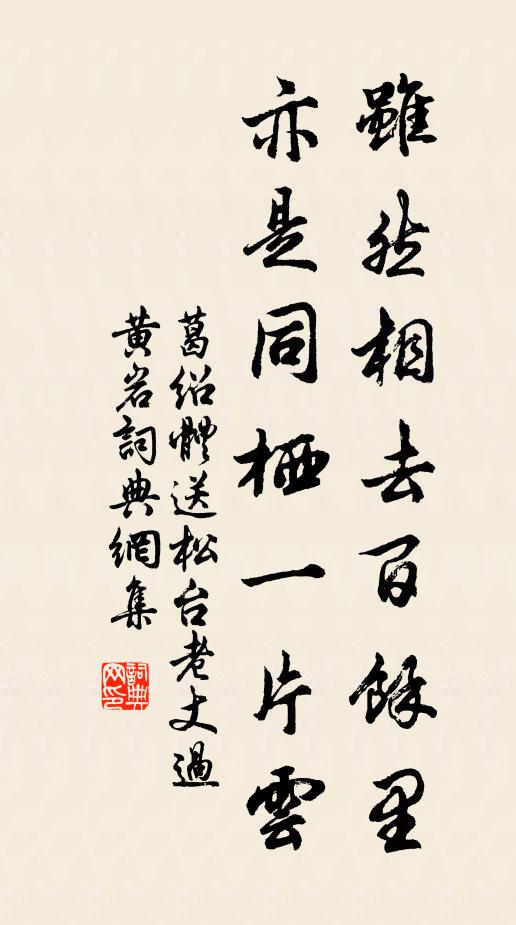 雖然相去百餘里
亦是同栖一片雲
葛紹體送松台老丈過
黃岩詞典網集
詞典
网印